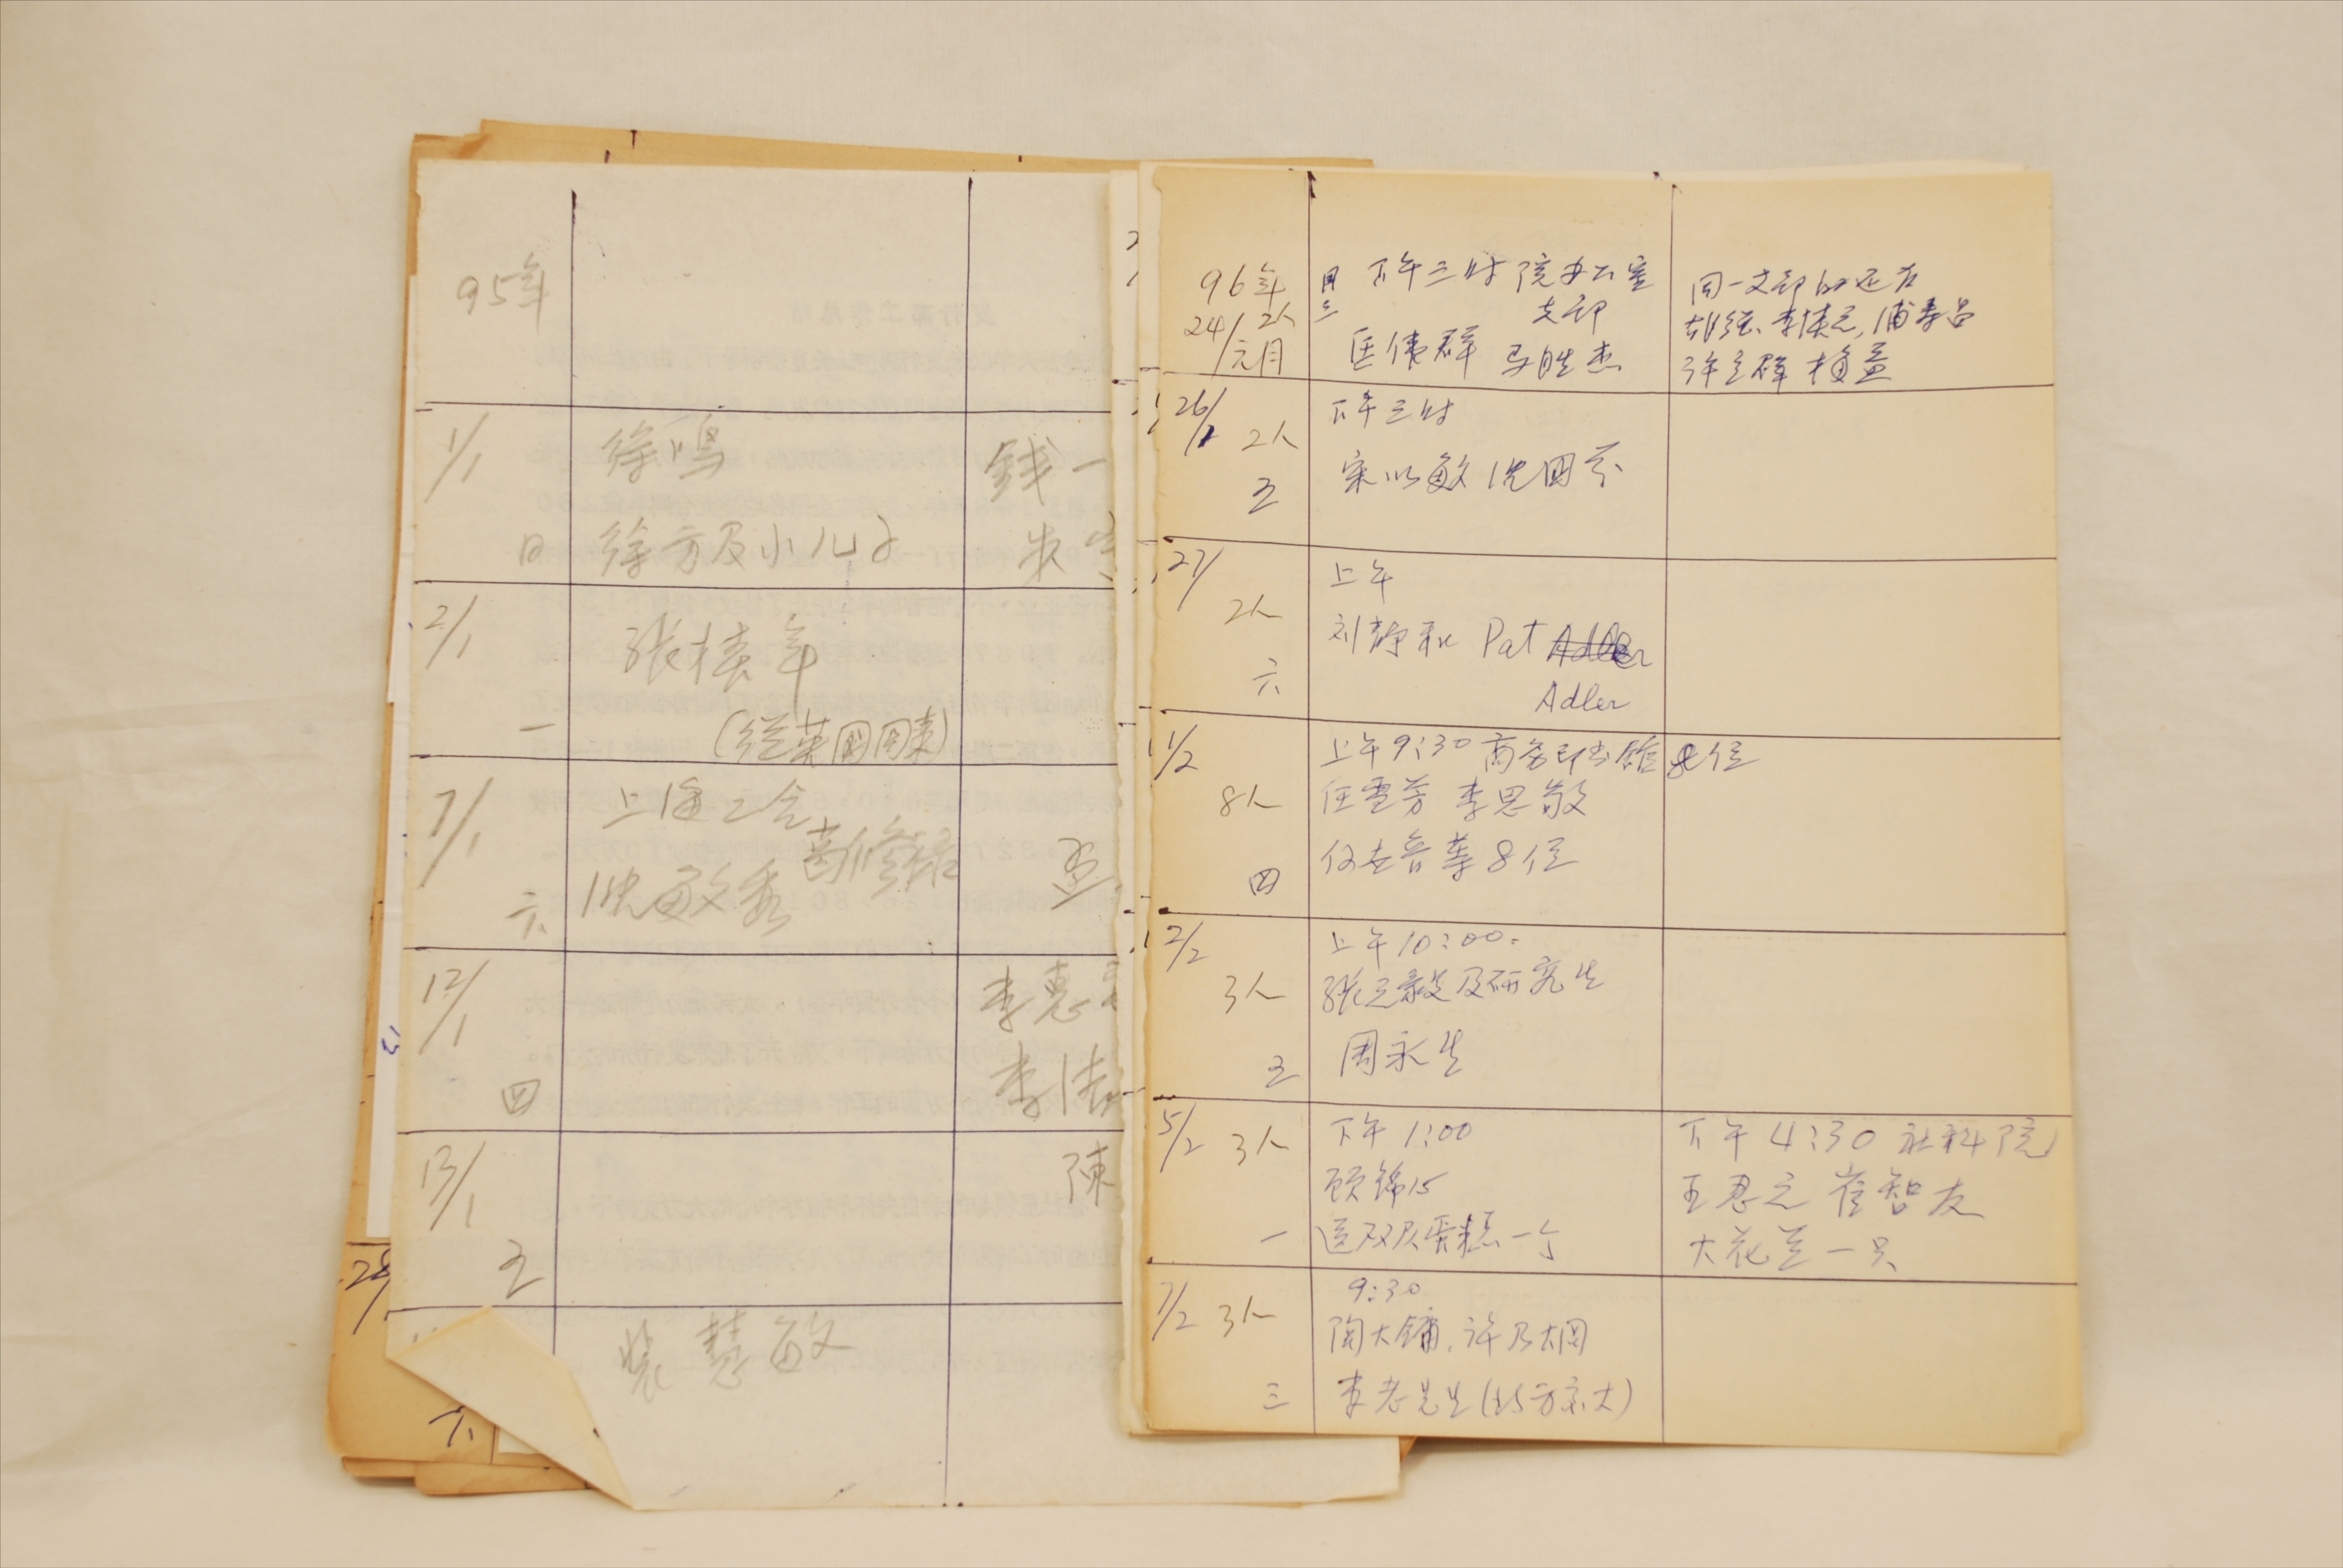 95年
1/1
日
徐鳴
徐方及小儿子
錢一
朱
2/1
一
張椿年
(從英國回來)
7/1
六
上海工会
沈敏秀
12/1
四
李惠
李
13/1
五
陳
裴慧敏
28/
六
96年
24/元月
2人
三
下午三时 院办公室
支部
匡 群 马胜杰
同一支部的还有
胡绳、李慎之,浦寿昌
许立群 梅益
26/1
2人
五
下午三时
宋以敏 沈国芬
27/
2人
六
上午
刘静和 Pat Adler
Adler
1/2
8人
四
上午9:30 商务印书馆 8位
任雪芳 李思敬
等8位
2/2
3人
五
上午10:00.
张之毅及研究生
周永生
5/2
3人
一
下午1:00
顾锦
送双层蛋糕一个
下午4:30 社科院
王忍之 崔智友
大花兰一只
7/2
3人
三
9:30
陶大镛,许乃炯
李老先生(北方交大)